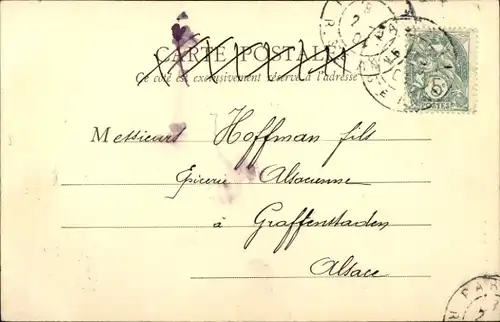 CARTE POSTALE
Ce côté est exclusivement réservé à l'adresse
Messieurs Hoffman fils
Epicerie Alsacienne
à Graffenstaden
Alsace
5
POSTES
PAR